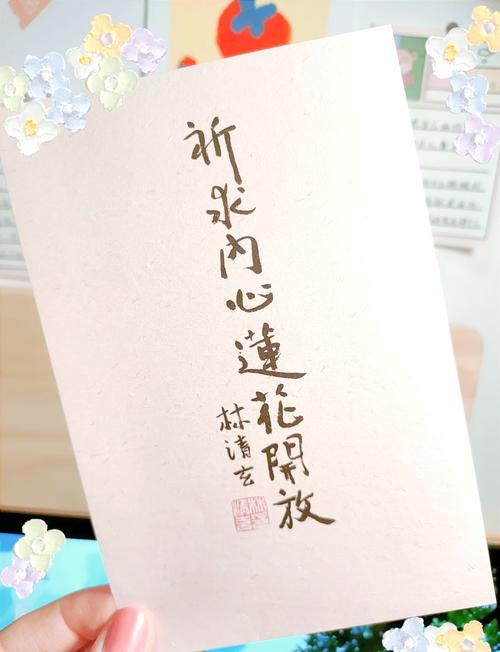 祈求內心蓮花開放
林清玄